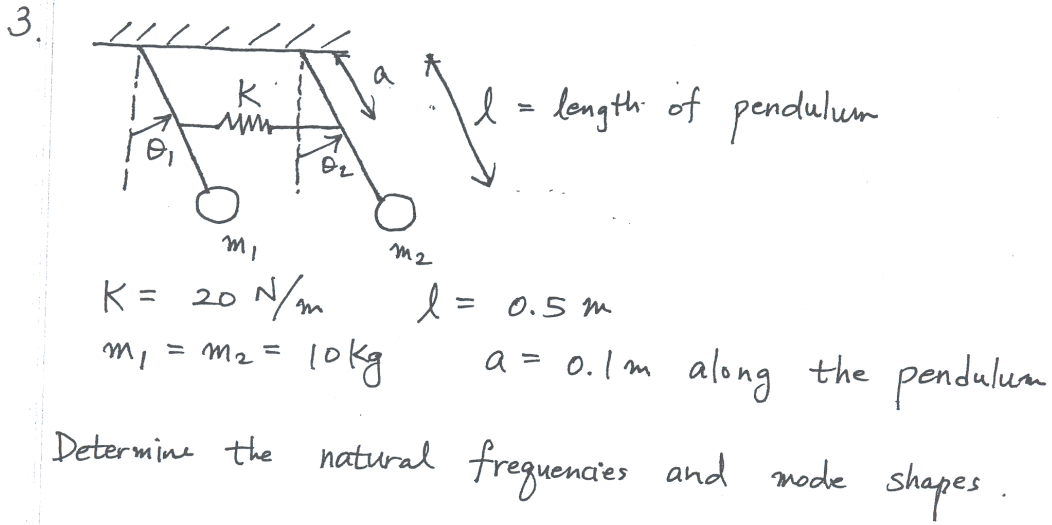 3.
a
K
l = length of pendulum
θ1
θ2
m1
m2
K = 20 N/m l = 0.5 m
m1 = m2 = 10 kg a = 0.1 m along the pendulum
Determine the natural frequencies and mode shapes.